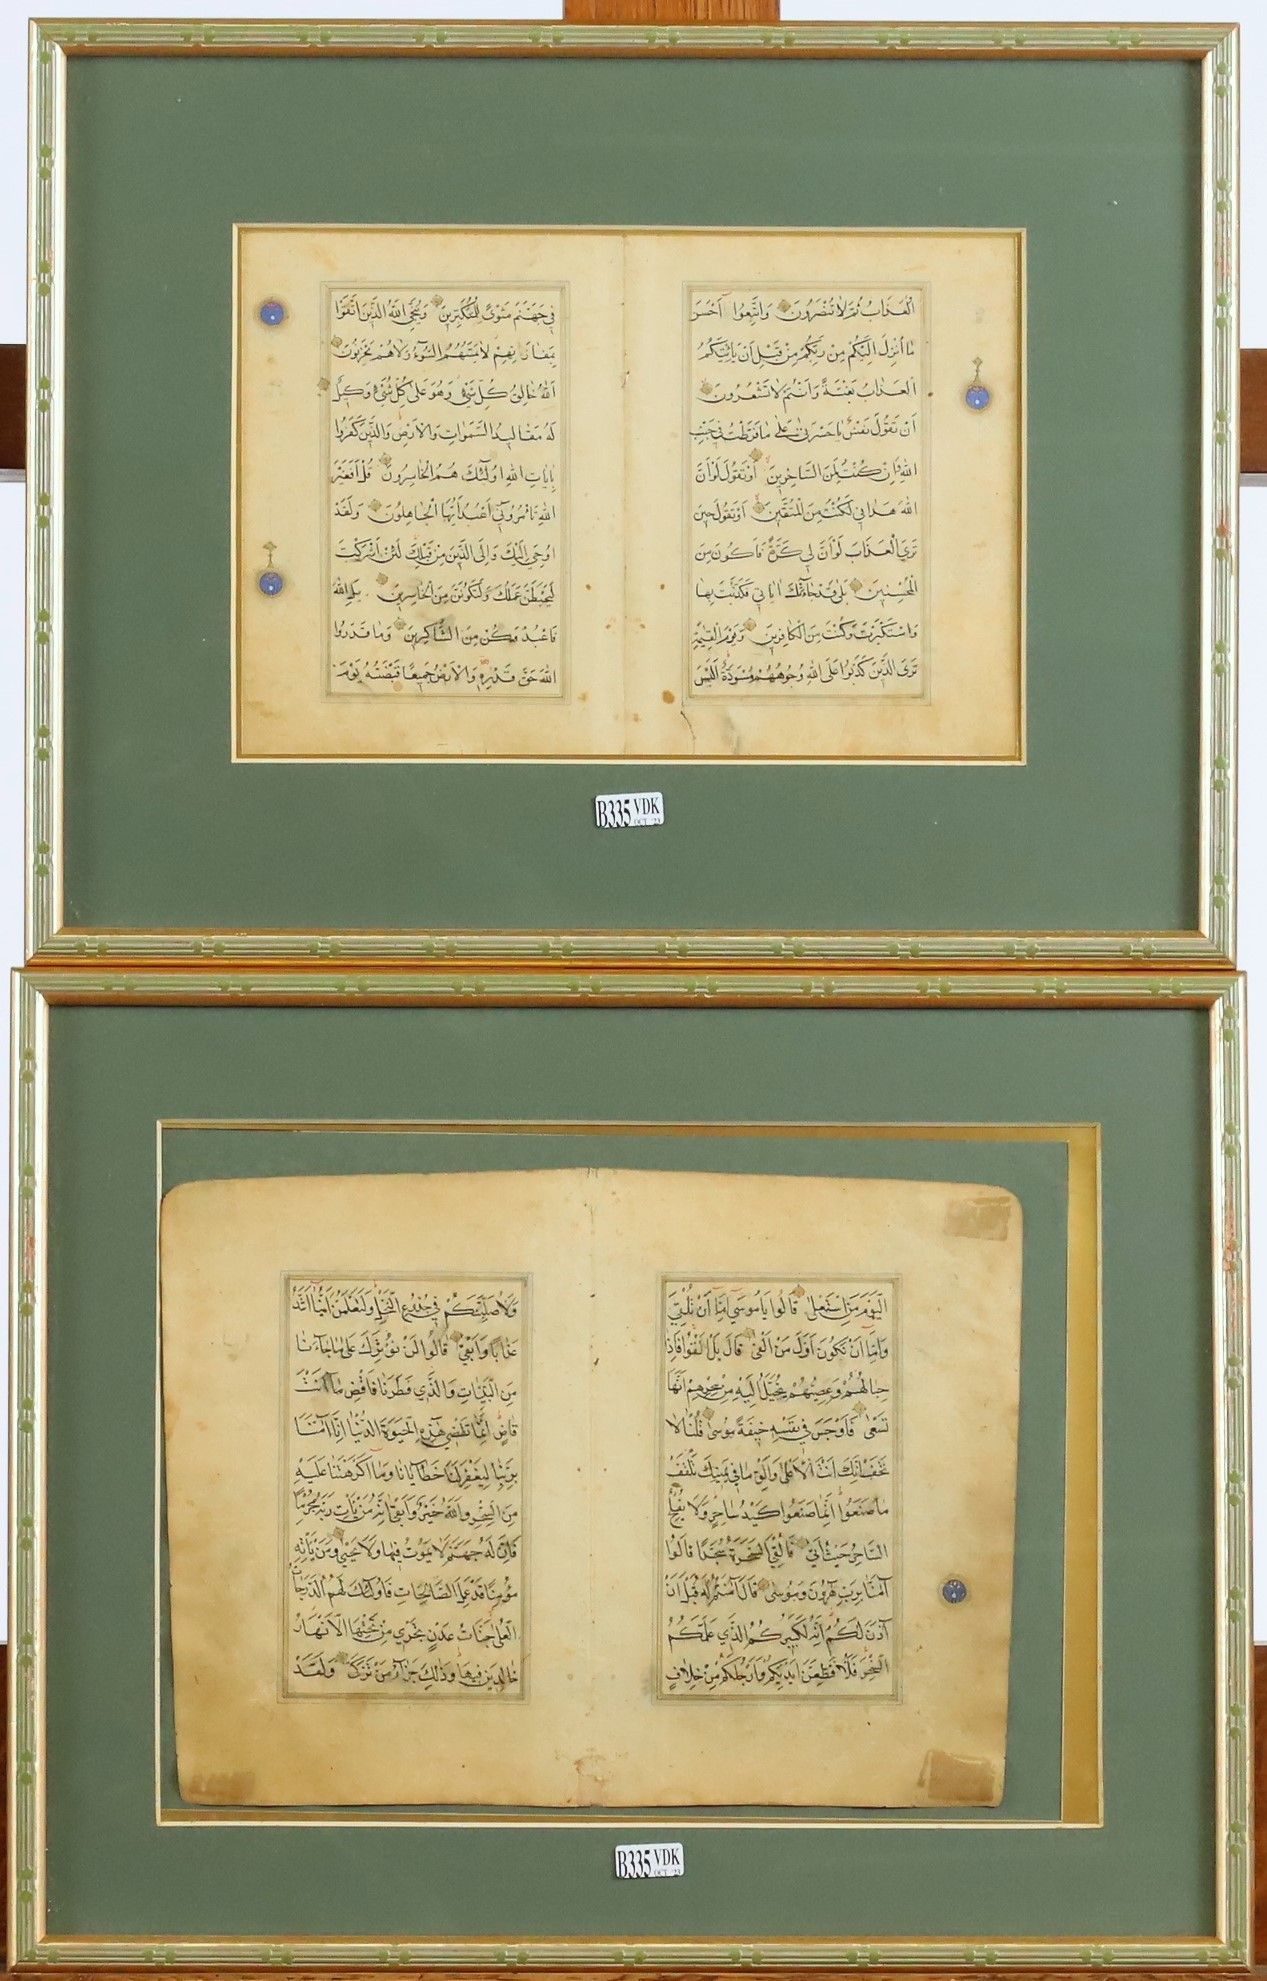 الْعَذَابُ ثُمَّ لَا تُنْصَرُونَ وَاتَّبِعُوا أَحْسَنَ
مَا أُنْزِلَ إِلَيْكُمْ مِنْ رَبِّكُمْ مِنْ قَبْلِ أَنْ يَأْتِيَكُمُ
الْعَذَابُ بَغْتَةً وَأَنْتُمْ لَا تَشْعُرُونَ
أَنْ تَقُولَ نَفْسٌ يَا حَسْرَتَىٰ عَلَىٰ مَا فَرَّطْتُ فِي جَنْبِ
اللَّهِ وَإِنْ كُنْتُ لَمِنَ السَّاخِرِينَ أَوْ تَقُولَ لَوْ أَنَّ
اللَّهَ هَدَانِي لَكُنْتُ مِنَ الْمُتَّقِينَ أَوْ تَقُولَ حِينَ
تَرَى الْعَذَابَ لَوْ أَنَّ لِي كَرَّةً فَأَكُونَ مِنَ
الْمُحْسِنِينَ بَلَىٰ قَدْ جَاءَتْكَ آيَاتِي فَكَذَّبْتَ بِهَا
وَاسْتَكْبَرْتَ وَكُنْتَ مِنَ الْكَافِرِينَ وَيَوْمَ الْقِيٰمَةِ
تَرَى الَّذِينَ كَذَبُوا عَلَى اللَّهِ وُجُوهُهُمْ مُسْوَدَّةٌ أَلَيْسَ
فِي جَهَنَّمَ مَثْوًى لِلْمُتَكَبِّرِينَ وَيُنَجِّي اللَّهُ الَّذِينَ اتَّقَوْا
بِمَفَازَتِهِمْ لَا يَمَسُّهُمُ السُّوءُ وَلَا هُمْ يَحْزَنُونَ
اللَّهُ خَالِقُ كُلِّ شَيْءٍ وَهُوَ عَلَىٰ كُلِّ شَيْءٍ وَكِيلٌ
لَهُ مَقَالِيدُ السَّمٰوَاتِ وَالْأَرْضِ وَالَّذِينَ كَفَرُوا
بِآيَاتِ اللَّهِ أُولَٰئِكَ هُمُ الْخَاسِرُونَ قُلْ أَفَغَيْرَ
اللَّهِ تَأْمُرُونِّي أَعْبُدُ أَيُّهَا الْجَاهِلُونَ وَلَقَدْ
أُوحِيَ إِلَيْكَ وَإِلَى الَّذِينَ مِنْ قَبْلِكَ لَئِنْ أَشْرَكْتَ
لَيَحْبَطَنَّ عَمَلُكَ وَلَتَكُونَنَّ مِنَ الْخَاسِرِينَ بَلِ اللَّهَ
فَاعْبُدْ وَكُنْ مِنَ الشَّاكِرِينَ وَمَا قَدَرُوا
اللَّهَ حَقَّ قَدْرِهِ وَالْأَرْضُ جَمِيعًا قَبْضَتُهُ يَوْمَ
B335 VDK
OCT. 23
الْيَوْمَ مَنِ اسْتَعْلَىٰ قَالُوا يَا مُوسَىٰ إِمَّا أَنْ تُلْقِيَ
وَإِمَّا أَنْ نَكُونَ أَوَّلَ مَنْ أَلْقَىٰ قَالَ بَلْ أَلْقُوا فَإِذَا
حِبَالُهُمْ وَعِصِيُّهُمْ يُخَيَّلُ إِلَيْهِ مِنْ سِحْرِهِمْ أَنَّهَا
تَسْعَىٰ فَأَوْجَسَ فِي نَفْسِهِ خِيفَةً مُوسَىٰ قُلْنَا لَا
تَخَفْ إِنَّكَ أَنْتَ الْأَعْلَىٰ وَأَلْقِ مَا فِي يَمِينِكَ تَلْقَفْ
مَا صَنَعُوا إِنَّمَا صَنَعُوا كَيْدُ سَاحِرٍ وَلَا يُفْلِحُ
السَّاحِرُ حَيْثُ أَتَىٰ فَأُلْقِيَ السَّحَرَةُ سُجَّدًا قَالُوا
آمَنَّا بِرَبِّ هٰرُونَ وَمُوسَىٰ قَالَ آمَنْتُمْ لَهُ قَبْلَ أَنْ
آذَنَ لَكُمْ إِنَّهُ لَكَبِيرُكُمُ الَّذِي عَلَّمَكُمُ
السِّحْرَ فَلَأُقَطِّعَنَّ أَيْدِيَكُمْ وَأَرْجُلَكُمْ مِنْ خِلَافٍ
وَلَأُصَلِّبَنَّكُمْ فِي جُذُوعِ النَّخْلِ وَلَتَعْلَمُنَّ أَيُّنَا أَشَدُّ
عَذَابًا وَأَبْقَىٰ قَالُوا لَنْ نُؤْثِرَكَ عَلَىٰ مَا جَاءَنَا
مِنَ الْبَيِّنَاتِ وَالَّذِي فَطَرَنَا فَاقْضِ مَا أَنْتَ
قَاضٍ إِنَّمَا تَقْضِي هَٰذِهِ الْحَيٰوةَ الدُّنْيَا إِنَّا آمَنَّا
بِرَبِّنَا لِيَغْفِرَ لَنَا خَطَايَانَا وَمَا أَكْرَهْتَنَا عَلَيْهِ
مِنَ السِّحْرِ وَاللَّهُ خَيْرٌ وَأَبْقَىٰ إِنَّهُ مَنْ يَأْتِ رَبَّهُ مُجْرِمًا
فَإِنَّ لَهُ جَهَنَّمَ لَا يَمُوتُ فِيهَا وَلَا يَحْيَىٰ وَمَنْ يَأْتِهِ
مُؤْمِنًا قَدْ عَمِلَ الصَّالِحَاتِ فَأُولَٰئِكَ لَهُمُ الدَّرَجَاتُ
الْعُلَىٰ جَنَّاتُ عَدْنٍ تَجْرِي مِنْ تَحْتِهَا الْأَنْهَارُ
خَالِدِينَ فِيهَا وَذَٰلِكَ جَزَاءُ مَنْ تَزَكَّىٰ وَلَقَدْ
B335 VDK
OCT. 23